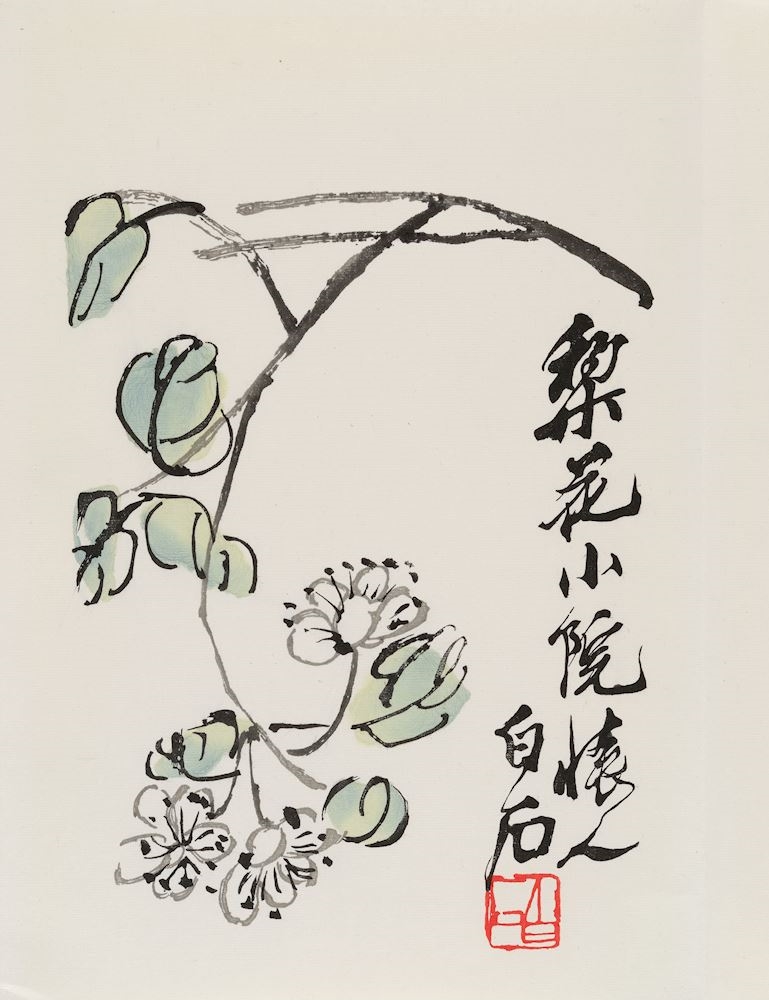 棃花小院懷人
白石